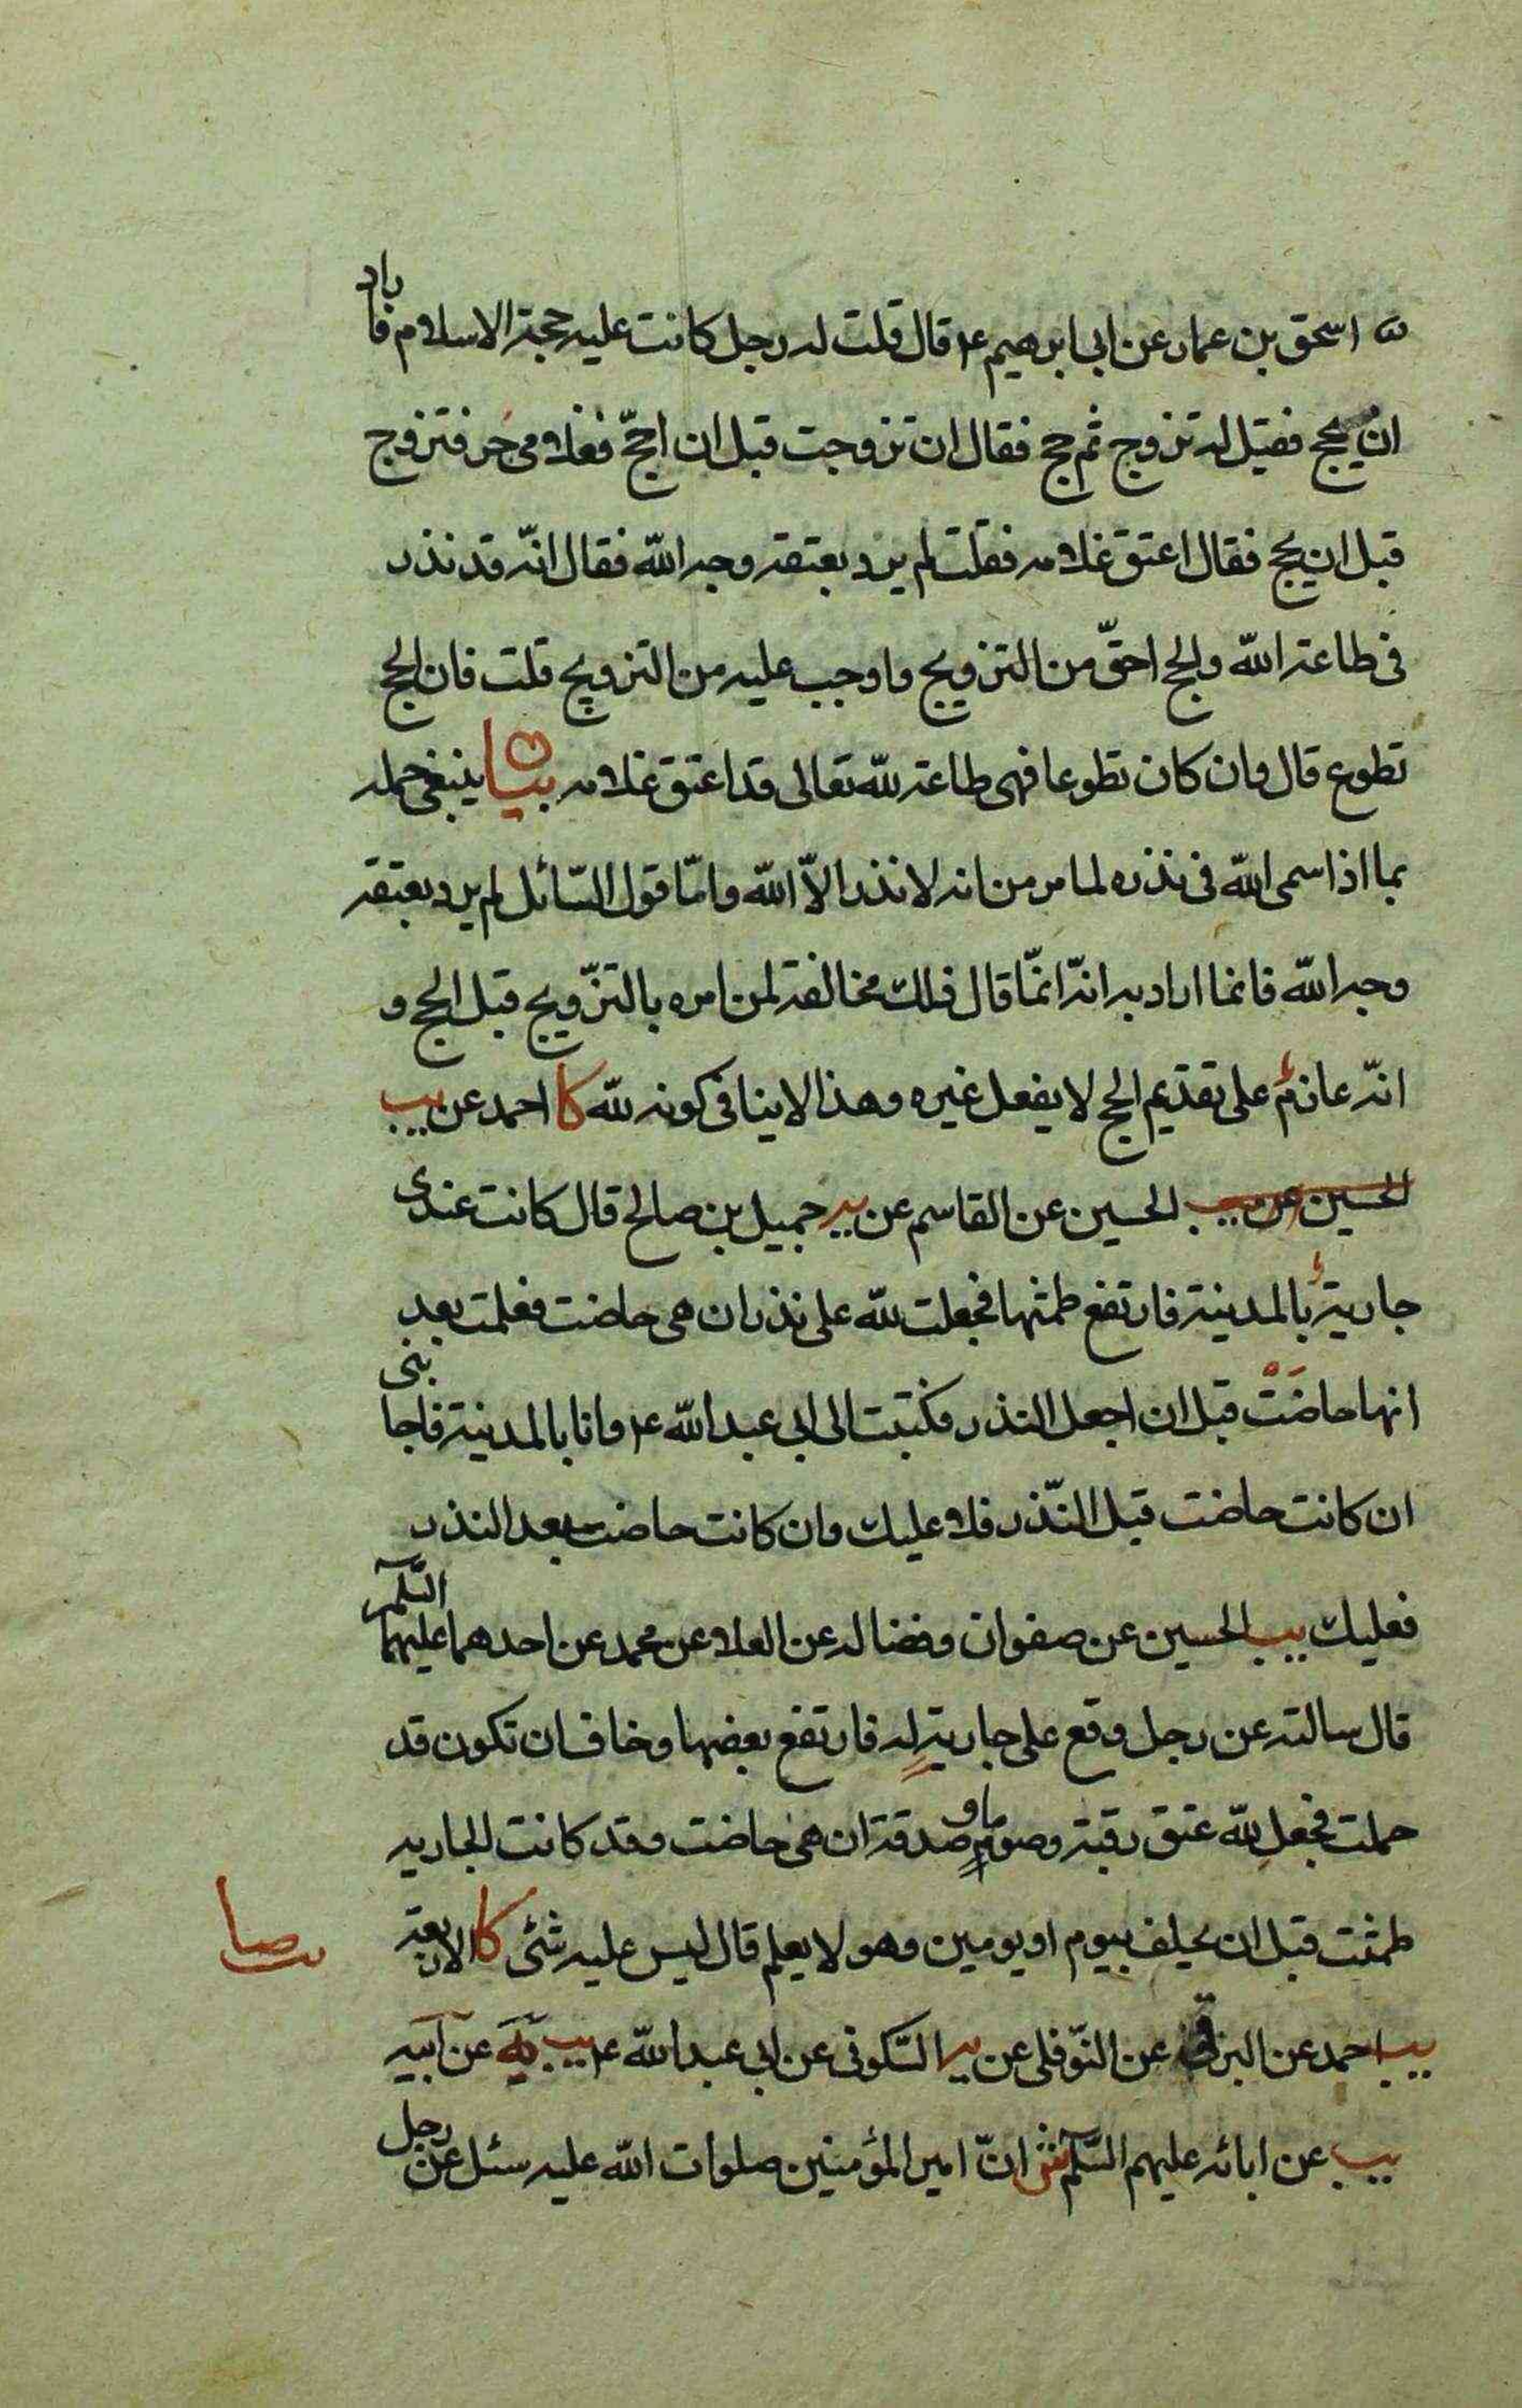 اسحق بن عمار عن ابی ابرهیم ع قال قلت له رجل کانت علیه حجة الاسلام فاراد
ان یحج فقیل له تزوج ثم حج فقال ان تزوجت قبل ان احجّ فغلامی حر فتزوج
قبل ان یحج فقال اعتق غلامه فقلت لم یرد بعتقه وجه اللّه فقال انّه قد نذر
فی طاعة اللّه والحج احقّ من التزویج واوجب علیه من التزویج قلت فان الحج
تطوع قال وان کان تطوعا فهی طاعة للّه تعالی قد اعتق غلامه بیان ینبغی حمله
بما اذا سمی اللّه فی نذره لما مر من انه لا نذر الاّ اللّه وامّا قول السّائل لم یرد بعتقه
وجه اللّه فانما اراد به انّه انمّا قال ذلک مخالفة لمن امره بالتزّویج قبل الحج و
انّه عازم علی تقدیم الحج لا یفعل غیره وهذا لا ینافی کونه للّه کا احمد عن یب
الحسین عن یب الحسین عن القاسم عن یه جمیل بن صالح قال کانت عندی
جاریة بالمدینة فارتفع طمثها فجعلت للّه علی نذر ان هی حاضت فعلمت بعد
انها حاضَتْ قبل ان اجعل النذر فکتبت الی ابی عبد اللّه ع وانا بالمدینة فاجابنی
ان کانت حاضت قبل النّذر فلا علیک وان کانت حاضت بعد النذر
فعلیک یب الحسین عن صفوان وفضالة عن العلا عن محمد عن احدهما علیهما السّلم
قال سالته عن رجل وقع علی جاریة له فارتفع بعضها وخاف ان تکون قد
حملت فجعل للّه عتق رقبة وصوما و صدقة ان هی حاضت وقد کانت الجاریه
طمثت قبل ان یحلف بیوم او یومین وهو لا یعلم قال لیس علیه شئ کا الاربعة
صا
یب احمد عن البرقی عن النّوفلی عن یه السّکونی عن ابی عبد اللّه ع یب یه عن ابیه
یب عن ابائه علیهم السّلم ش انّ امیر المؤمنین صلوات اللّه علیه سئل عن رجل